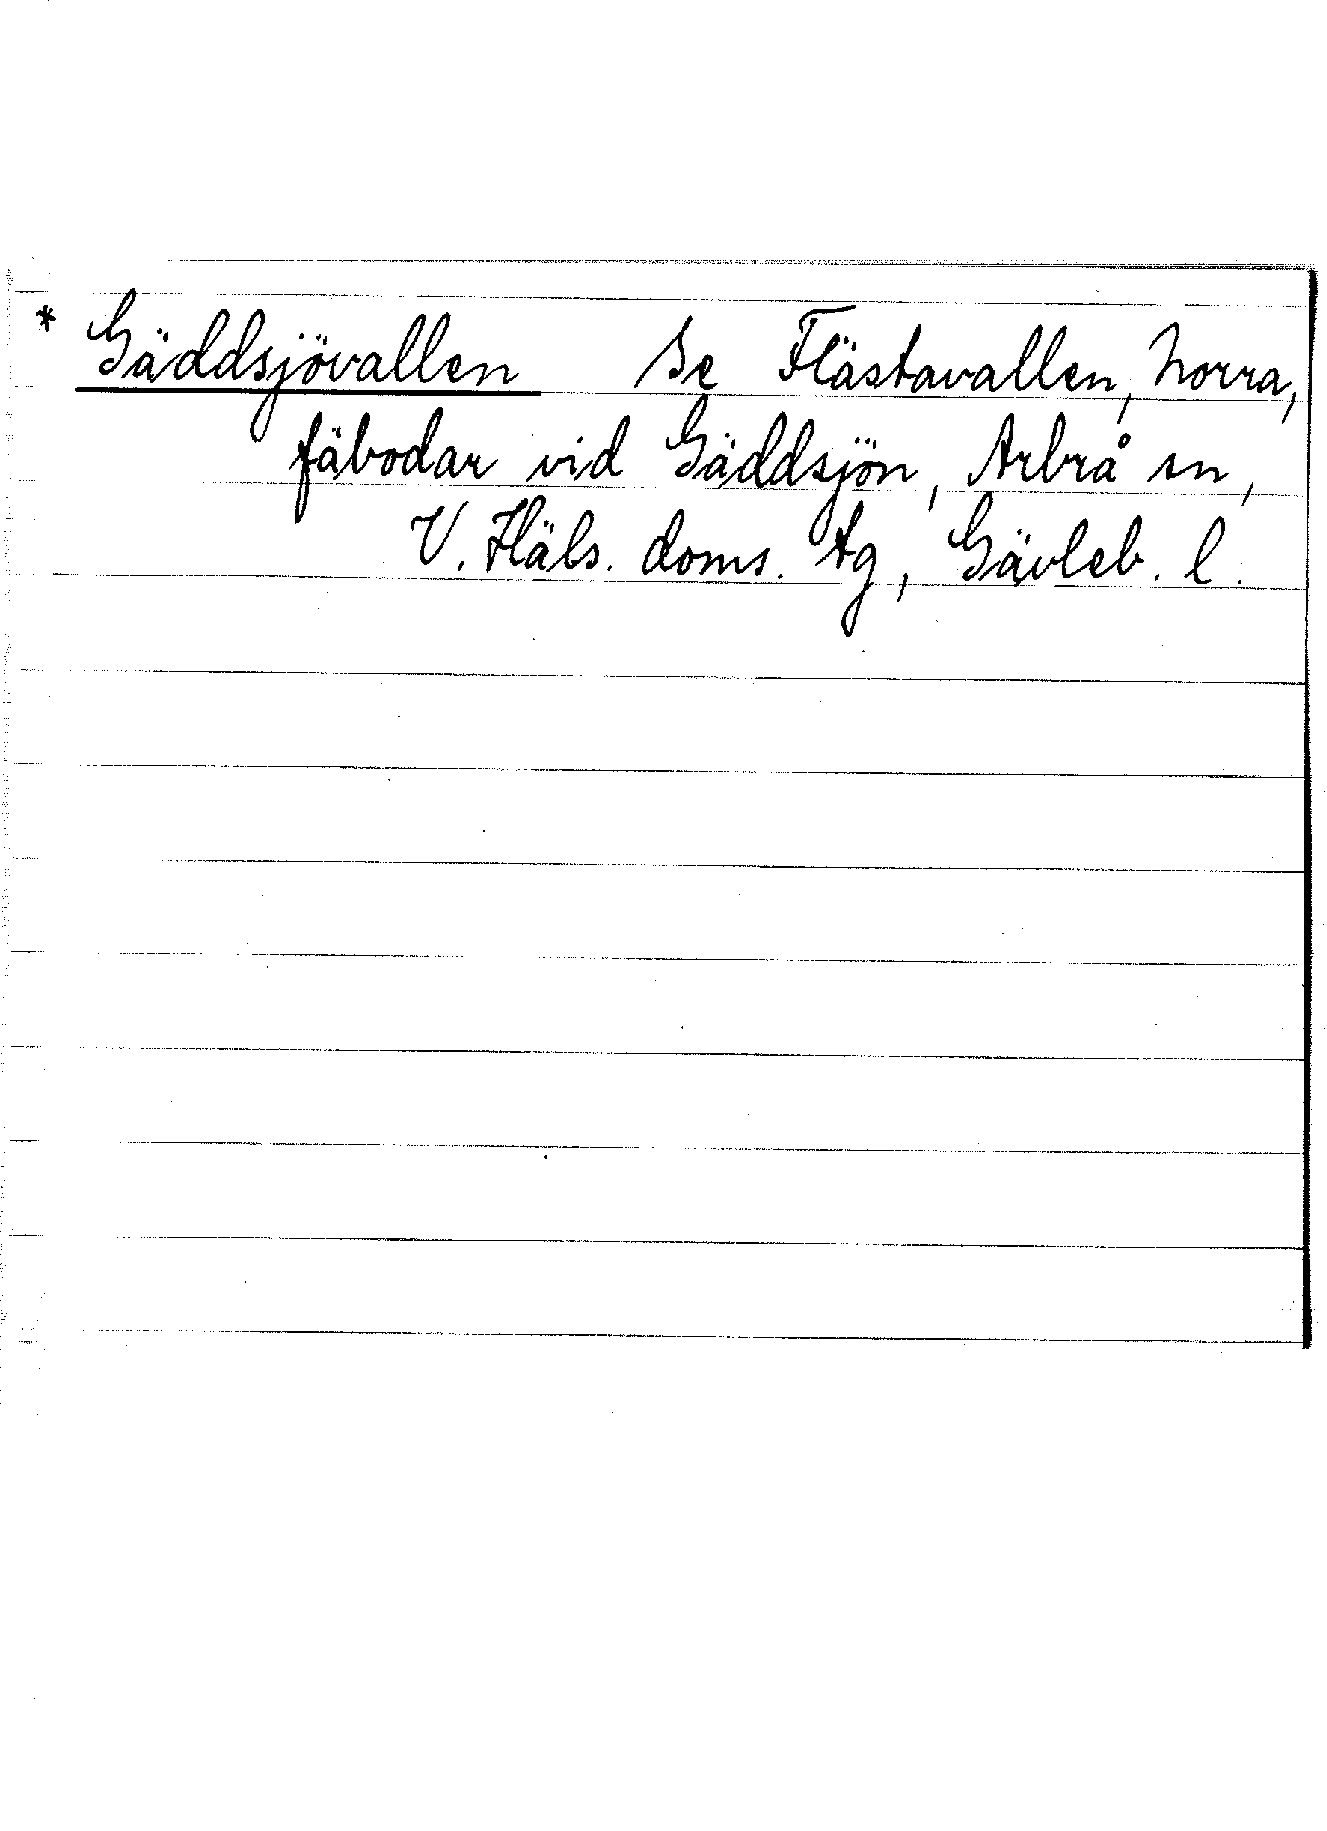 * Gäddsjövallen Se Flästavallen, Norra,
fäbodar vid Gäddsjön, Arbrå sn,
V. Häls. doms. tg, Gävleb. l.